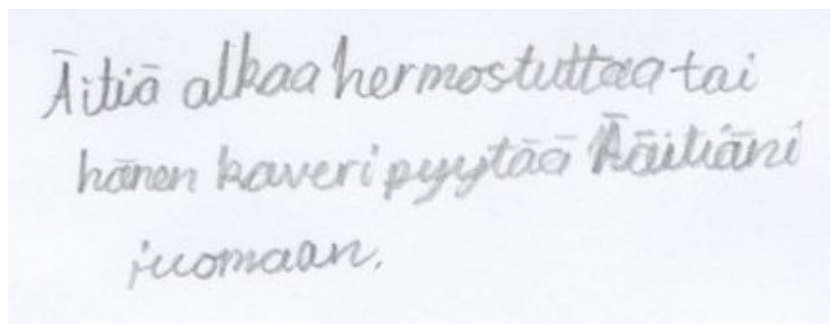 Äitiä alkaa hermostuttaa tai
hänen kaveri pyytää äitiäni
juomaan.